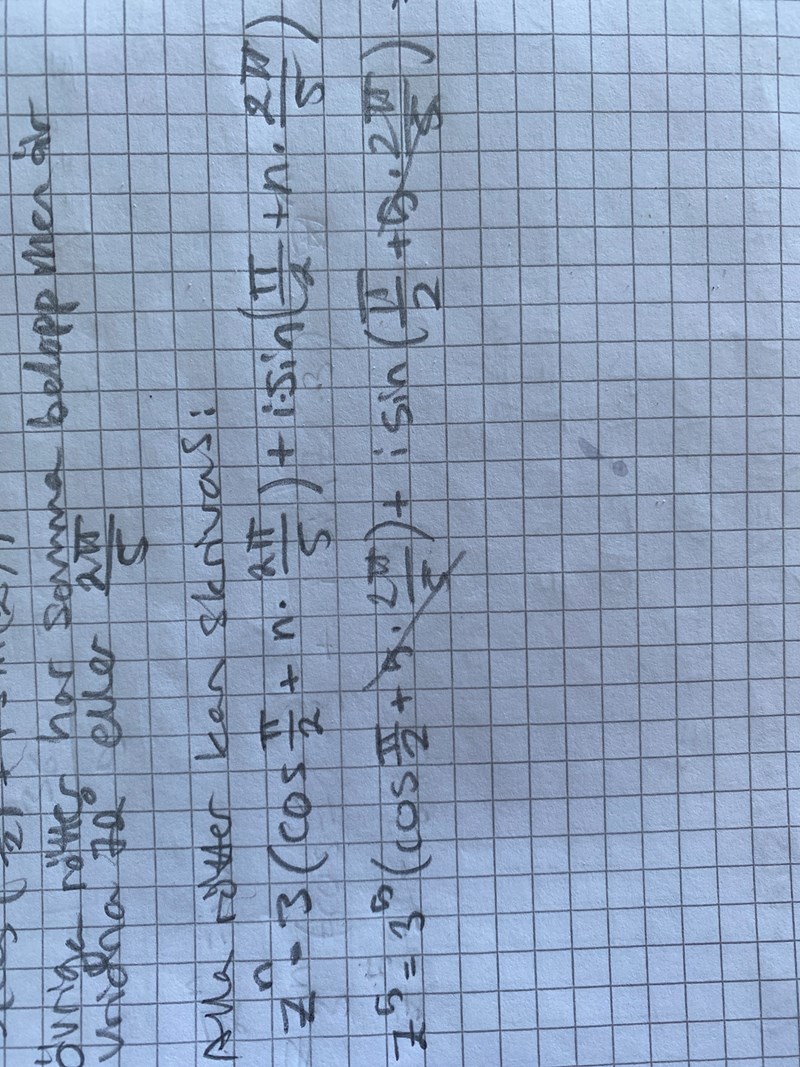 Övriga rötter har samma belopp men är
vridna 72 eller 2π/5
Alla rötter kan skrivas:
zⁿ = 3(cos π/2 + n · 2π/5) + i·sin(π/2 + n · 2π/5)
z⁵ = 3⁵(cos π/2 + 5 · 2π/5) + i sin(π/2 + 5 · 2π/5)